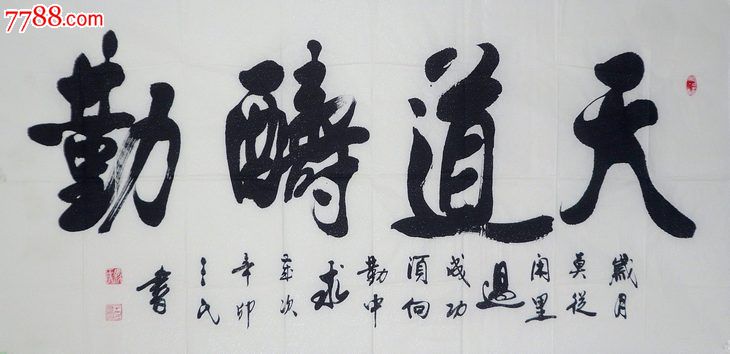 7788.com
天道醻勤
歲月
莫從
閑里
過
成功
須向
勤中
求
歲次
辛卯
民
書